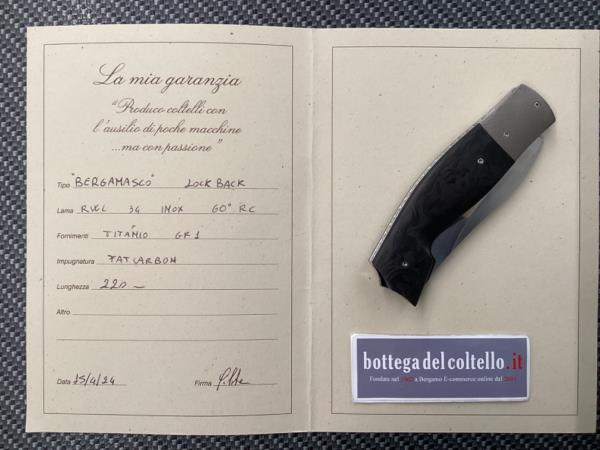 La mia garanzia
"Produco coltelli con
l'ausilio di poche macchine
...ma con passione"
Tipo "BERGAMASCO" LOCK BACK
Lama RWL 34 INOX 60° RC
Fornimenti TITANIO GR1
Impugnatura FATCARBON
Lunghezza 220
Altro
Data 15/4/24 Firma
bottega del coltello.it
Fondata nel a Bergamo E-commerce online dal